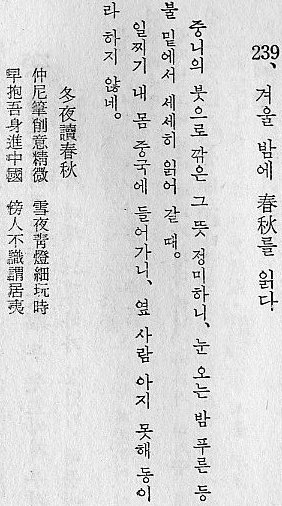 239、 겨울 밤에 春秋를 읽다
중니의 붓으로 깎은 그 뜻 정미하니、눈 오는 밤 푸른 등
불 밑에서 세세히 읽어 갈 때。
일찌기 내 몸 중국에 들어가니、옆 사람 아지 못해 동이
라 하지 않네。
冬夜讀春秋
仲尼筆創意精微 雪夜靑燈細玩時
早抱吾身進中國 傍人不識謂居夷